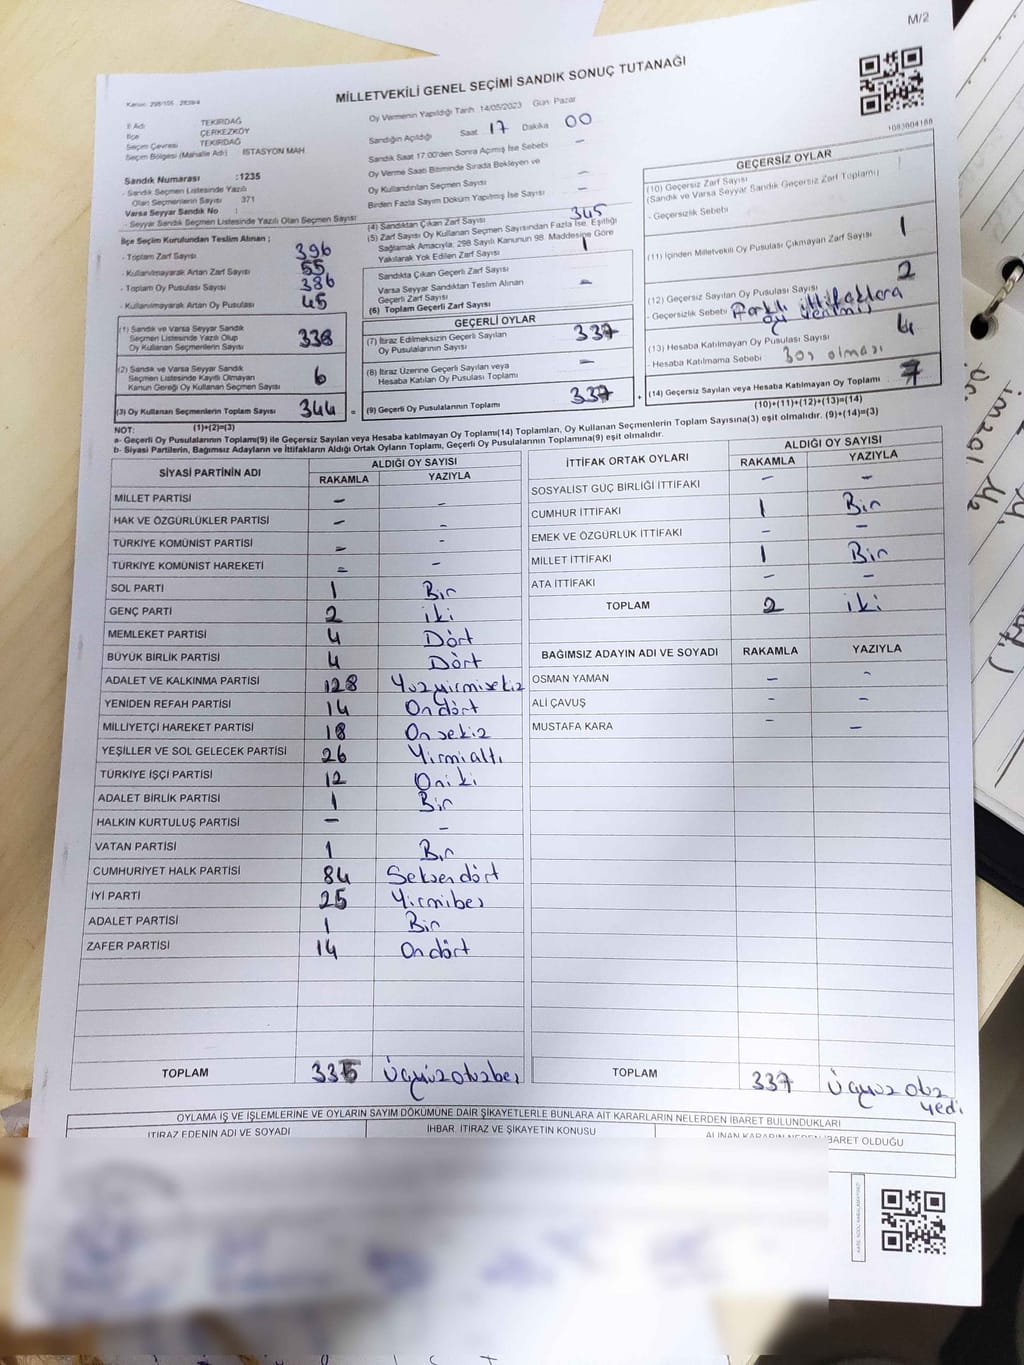 M/2
MİLLETVEKİLİ GENEL SEÇİMİ SANDIK SONUÇ TUTANAĞI
Kanun: 298/105 - 2839/4
İl Adı TEKİRDAĞ
İlçe ÇERKEZKÖY
Seçim Çevresi TEKİRDAĞ
Seçim Bölgesi (Mahalle Adı) İSTASYON MAH
Sandık Numarası :1235
- Sandık Seçmen Listesinde Yazılı
Olan Seçmenlerin Sayısı 371
Varsa Seyyar Sandık No :
- Seyyar Sandık Seçmen Listesinde Yazılı Olan Seçmen Sayısı
Oy Vermenin Yapıldığı Tarih 14/05/2023 Gün: Pazar
Sandığın Açıldığı Saat 17 Dakika 00
Sandık Saat 17.00'den Sonra Açımış İse Sebebi –
Oy Verme Saati Bitiminde Sırada Bekleyen ve
Oy Kullandırılan Seçmen Sayısı –
Birden Fazla Sayım Döküm Yapılmış İse Sayısı –
1083004188
İlçe Seçim Kurulundan Teslim Alınan ;
- Toplam Zarf Sayısı 396
- Kullanılmayarak Artan Zarf Sayısı 55
- Toplam Oy Pusulası Sayısı 386
- Kullanılmayarak Artan Oy Pusulası 45
(1) Sandık ve Varsa Seyyar Sandık
Seçmen Listesinde Yazılı Olup
Oy Kullanan Seçmenlerin Sayısı 338
(2) Sandık ve Varsa Seyyar Sandık
Seçmen Listesinde Kayıtlı Olmayan
Kanun Gereği Oy Kullanan Seçmen Sayısı 6
(3) Oy Kullanan Seçmenlerin Toplam Sayısı 344 =
(1)+(2)=(3)
(4) Sandıktan Çıkan Zarf Sayısı 345
(5) Zarf Sayısı Oy Kullanan Seçmen Sayısından Fazla İse, Eşitliği
Sağlamak Amacıyla, 298 Sayılı Kanunun 98. Maddesine Göre
Yakılarak Yok Edilen Zarf Sayısı 1
Sandıkta Çıkan Geçerli Zarf Sayısı
Varsa Seyyar Sandıktan Teslim Alınan
Geçerli Zarf Sayısı –
(6) Toplam Geçerli Zarf Sayısı
GEÇERLİ OYLAR
(7) İtiraz Edilmeksizin Geçerli Sayılan
Oy Pusulalarının Sayısı 337
(8) İtiraz Üzerine Geçerli Sayılan veya
Hesaba Katılan Oy Pusulası Toplamı –
(9) Geçerli Oy Pusulalarının Toplamı 337 +
GEÇERSİZ OYLAR
(10) Geçersiz Zarf Sayısı
(Sandık ve Varsa Seyyar Sandık Geçersiz Zarf Toplamı)
- Geçersizlik Sebebi
(11) İçinden Milletvekili Oy Pusulası Çıkmayan Zarf Sayısı 1
(12) Geçersiz Sayılan Oy Pusulası Sayısı 2
- Geçersizlik Sebebi Farklı ittifaklara
oy verilmiş
(13) Hesaba Katılmayan Oy Pusulası Sayısı 4
- Hesaba Katılmama Sebebi Boş olması
(14) Geçersiz Sayılan veya Hesaba Katılmayan Oy Toplamı 7
(10)+(11)+(12)+(13)=(14)
NOT:
a- Geçerli Oy Pusulalarının Toplamı(9) ile Geçersiz Sayılan veya Hesaba katılmayan Oy Toplamı(14) Toplamları, Oy Kullanan Seçmenlerin Toplam Sayısına(3) eşit olmalıdır. (9)+(14)=(3)
b- Siyasi Partilerin, Bağımsız Adayların ve İttifakların Aldığı Ortak Oyların Toplamı, Geçerli Oy Pusulalarının Toplamına(9) eşit olmalıdır.
SİYASİ PARTİNİN ADI ALDIĞI OY SAYISI
RAKAMLA YAZIYLA
MİLLET PARTİSİ – –
HAK VE ÖZGÜRLÜKLER PARTİSİ – –
TÜRKİYE KOMÜNİST PARTİSİ – –
TÜRKİYE KOMÜNİST HAREKETİ – –
SOL PARTİ 1 Bir
GENÇ PARTİ 2 iki
MEMLEKET PARTİSİ 4 Dört
BÜYÜK BİRLİK PARTİSİ 4 Dört
ADALET VE KALKINMA PARTİSİ 128 Yüzyirmisekiz
YENİDEN REFAH PARTİSİ 14 Ondört
MİLLİYETÇİ HAREKET PARTİSİ 18 Onsekiz
YEŞİLLER VE SOL GELECEK PARTİSİ 26 Yirmialtı
TÜRKİYE İŞÇİ PARTİSİ 12 Oniki
ADALET BİRLİK PARTİSİ 1 Bir
HALKIN KURTULUŞ PARTİSİ – –
VATAN PARTİSİ 1 Bir
CUMHURİYET HALK PARTİSİ 84 Seksendört
İYİ PARTİ 25 Yirmibeş
ADALET PARTİSİ 1 Bir
ZAFER PARTİSİ 14 Ondört
TOPLAM 335 Üçyüzotuzbeş
İTTİFAK ORTAK OYLARI ALDIĞI OY SAYISI
RAKAMLA YAZIYLA
SOSYALİST GÜÇ BİRLİĞİ İTTİFAKI – –
CUMHUR İTTİFAKI 1 Bir
EMEK VE ÖZGÜRLÜK İTTİFAKI – –
MİLLET İTTİFAKI 1 Bir
ATA İTTİFAKI – –
TOPLAM 2 iki
BAĞIMSIZ ADAYIN ADI VE SOYADI RAKAMLA YAZIYLA
OSMAN YAMAN – –
ALİ ÇAVUŞ – –
MUSTAFA KARA – –
TOPLAM 337 Üçyüz otuz
yedi
OYLAMA İŞ VE İŞLEMLERİNE VE OYLARIN SAYIM DÖKÜMÜNE DAİR ŞİKAYETLERLE BUNLARA AİT KARARLARIN NELERDEN İBARET BULUNDUKLARI
İTİRAZ EDENİN ADI VE SOYADI İHBAR, İTİRAZ VE ŞİKAYETİN KONUSU ALINAN KARARIN NEDEN İBARET OLDUĞU